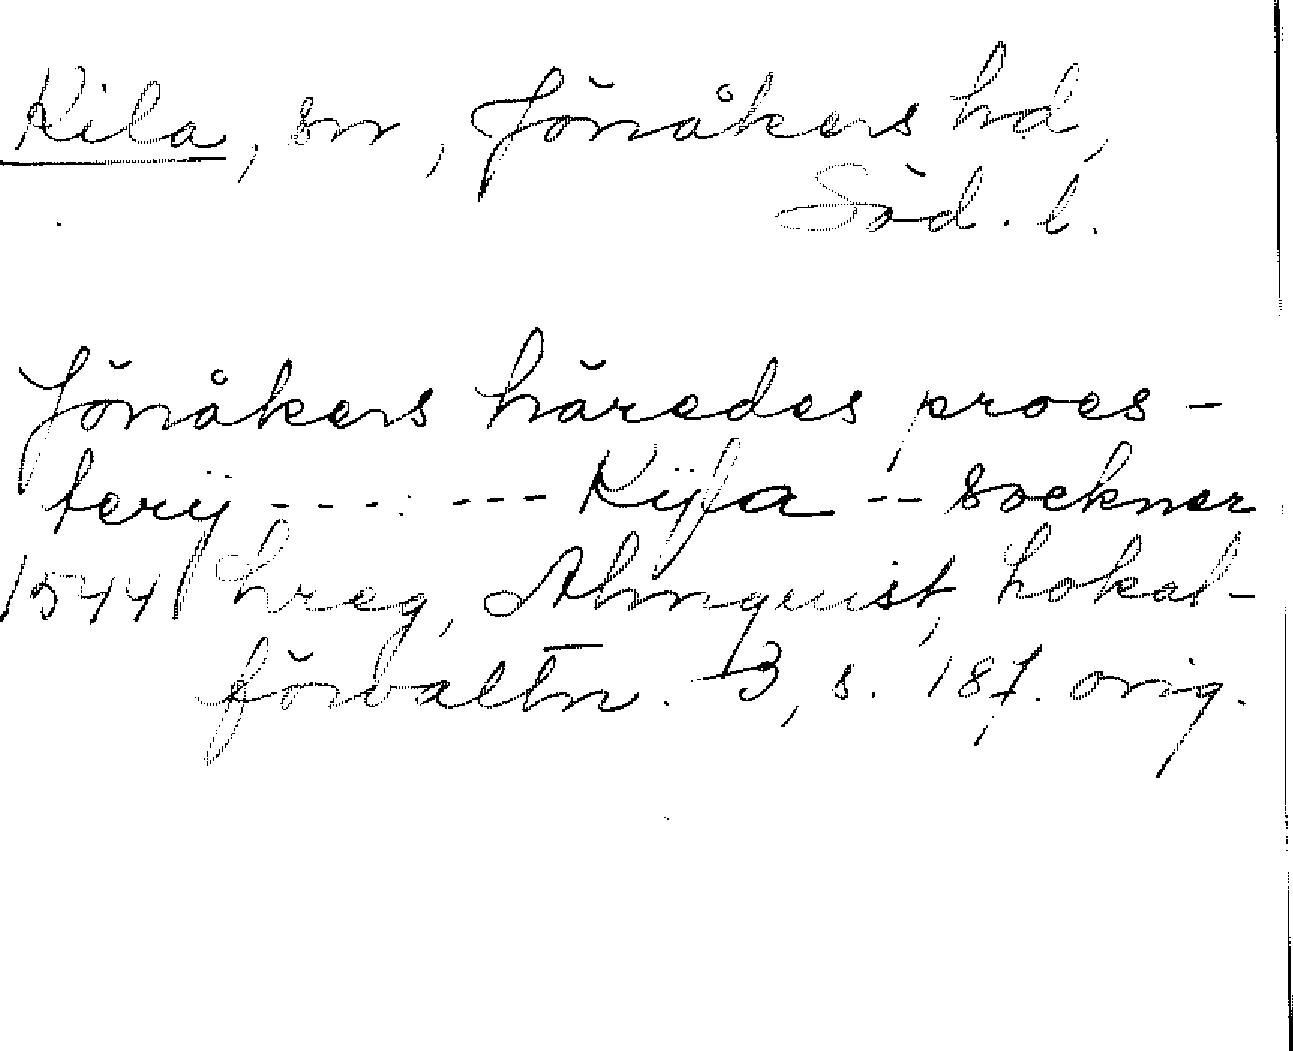 Kila, sn, Jönåkers hd,
Söd. l.
Jönåkers häredes proes-
terij ------- Kijla -- sockner
1544 Lreg, Almquist, Lokal-
förvaltn. 3, s. 187. orig.